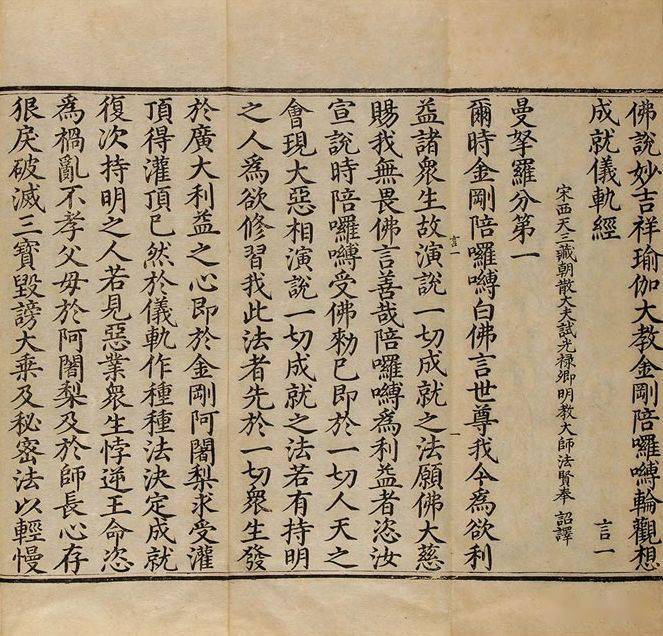 佛說妙吉祥瑜伽大教金剛陪囉嚩輪觀想
成就儀軌經 言一
宋西天三藏朝散大夫試光祿卿明教大師法賢奉 詔譯
曼拏羅分第一
爾時金剛陪囉嚩白佛言世尊我今為欲利
言一 一
益諸衆生故演說一切成就之法願佛大慈
賜我無畏佛言善哉陪囉嚩為利益者恣汝
宣說時陪囉嚩受佛勑已即於一切人天之
會現大惡相演說一切成就之法若有持明
之人為欲修習我此法者先於一切衆生發
於廣大利益之心即於金剛阿闍梨求受灌
頂得灌頂已然於儀軌作種種法決定成就
復次持明之人若見惡業衆生悖逆王命恣
為禍亂不孝父母於阿闍梨及於師長心存
狠戾破滅三寶毀謗大乘及秘密法以輕慢